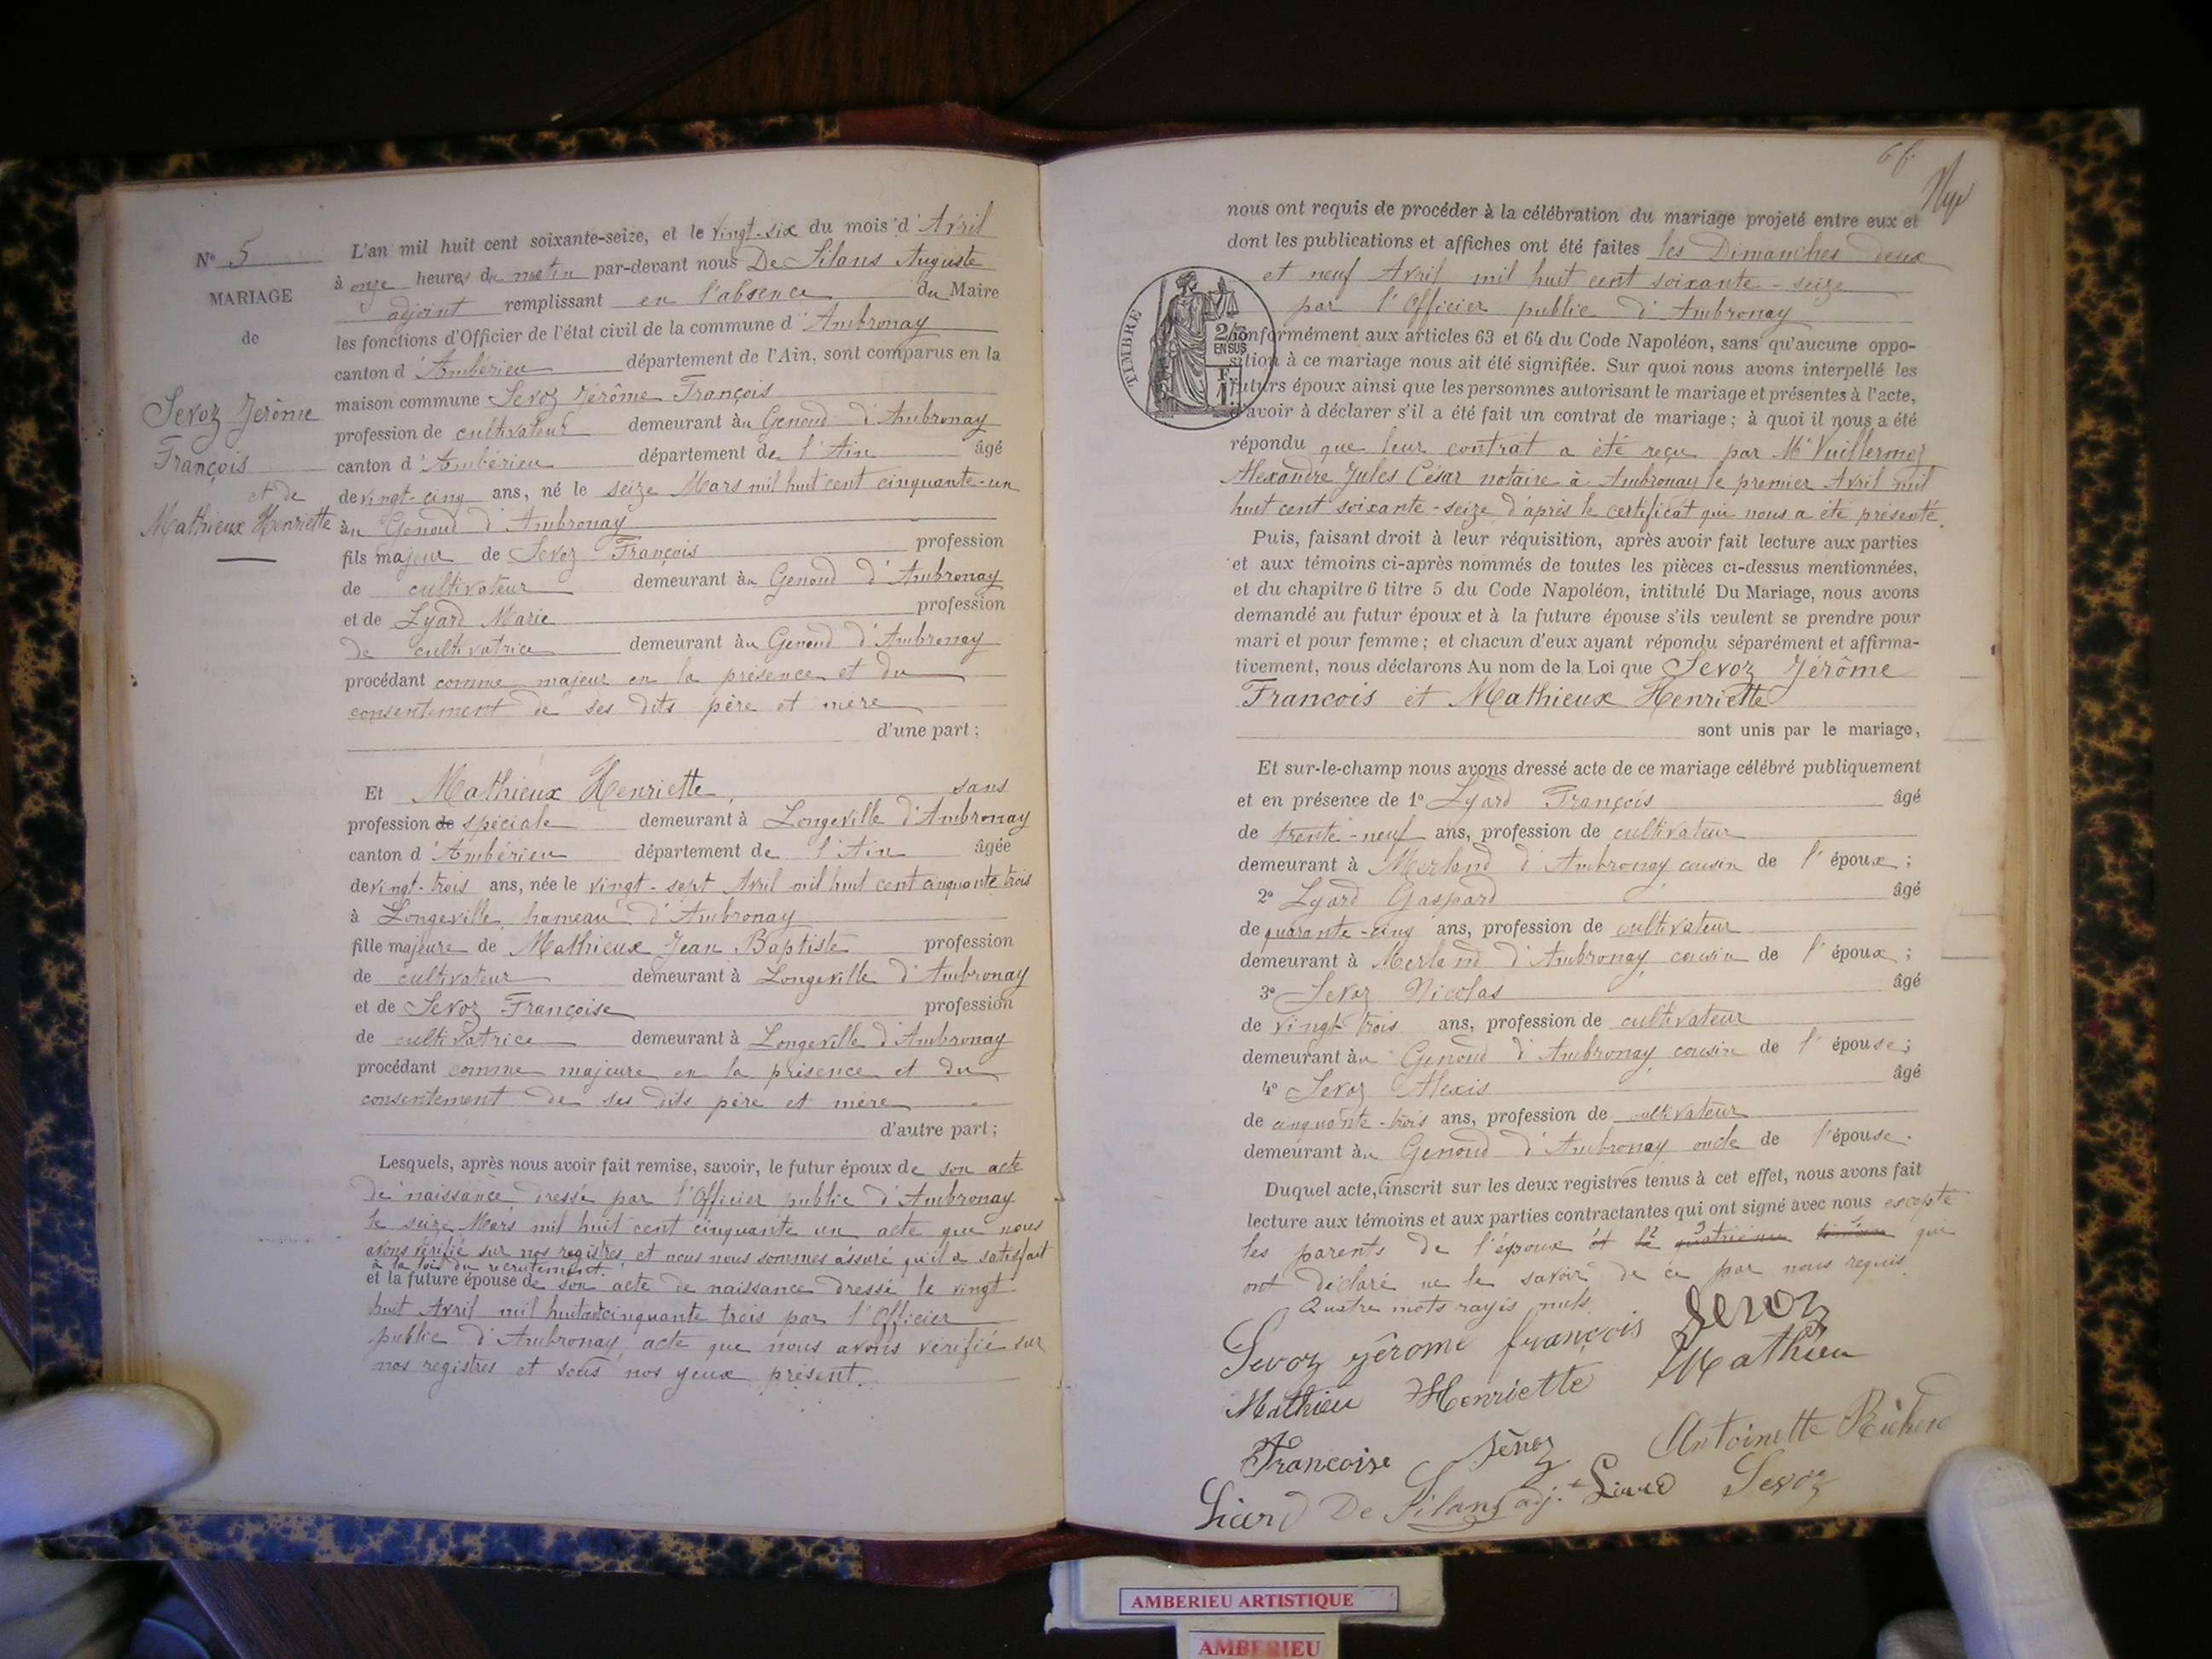 N° 5
MARIAGE
de
Sevoz Jérôme
François
et de
Mathieux Henriette
L'an mil huit cent soixante-seize, et le vingt-six du mois d'Avril
à onze heures du matin par-devant nous De Silans Auguste
adjoint remplissant en l'absence du Maire
les fonctions d'Officier de l'état civil de la commune d'Ambronay
canton d'Ambérieu département de l'Ain, sont comparus en la
maison commune Sevoz Jérôme François
profession de cultivateur demeurant au Genoud d'Ambronay
canton d'Ambérieu département de l'Ain âgé
de vingt-cinq ans, né le seize Mars mil huit cent cinquante-un
au Genoud d'Ambronay
fils majeur de Sevoz François profession
de cultivateur demeurant au Genoud d'Ambronay
et de Lyard Marie profession
de cultivatrice demeurant au Genoud d'Ambronay
procédant comme majeur en la présence et du
consentement de ses dits père et mère
d'une part ;
Et Mathieux Henriette, sans
profession de spéciale demeurant à Longeville d'Ambronay
canton d'Ambérieu département de l'Ain âgée
de vingt-trois ans, née le vingt-sept Avril mil huit cent cinquante trois
à Longeville hameau d'Ambronay
fille majeure de Mathieux Jean Baptiste profession
de cultivateur demeurant à Longeville d'Ambronay
et de Sevoz Françoise profession
de cultivatrice demeurant à Longeville d'Ambronay
procédant comme majeure en la présence et du
consentement de ses dits père et mère
d'autre part ;
Lesquels, après nous avoir fait remise, savoir, le futur époux de son acte
de naissance dressé par l'Officier public d'Ambronay
le seize Mars mil huit cent cinquante un acte que nous
avons vérifié sur nos registres et nous nous sommes assuré qu'il a satisfait
à la loi du recrutement.
et la future épouse de son acte de naissance dressé le vingt
huit Avril mil huit cent cinquante trois par l'Officier
public d'Ambronay acte que nous avons vérifié sur
nos registres et sous nos yeux présent.
66
nous ont requis de procéder à la célébration du mariage projeté entre eux et
dont les publications et affiches ont été faites les Dimanches deux
et neuf Avril mil huit cent soixante-seize
par l'Officier public d'Ambronay
TIMBRE
2/10
EN SUS
conformément aux articles 63 et 64 du Code Napoléon, sans qu'aucune oppo-
sition à ce mariage nous ait été signifiée. Sur quoi nous avons interpellé les
futurs époux ainsi que les personnes autorisant le mariage et présentes à l'acte,
d'avoir à déclarer s'il a été fait un contrat de mariage ; à quoi il nous a été
répondu que leur contrat a été reçu par Me Vuillermoz
Alexandre Jules César notaire à Ambronay le premier Avril mil
huit cent soixante-seize d'après le certificat qui nous a été présenté.
Puis, faisant droit à leur réquisition, après avoir fait lecture aux parties
et aux témoins ci-après nommés de toutes les pièces ci-dessus mentionnées,
et du chapitre 6 titre 5 du Code Napoléon, intitulé Du Mariage, nous avons
demandé au futur époux et à la future épouse s'ils veulent se prendre pour
mari et pour femme ; et chacun d'eux ayant répondu séparément et affirma-
tivement, nous déclarons Au nom de la Loi que Sevoz Jérôme
François et Mathieux Henriette
sont unis par le mariage,
Et sur-le-champ nous avons dressé acte de ce mariage célébré publiquement
et en présence de 1° Lyard François âgé
de trente-neuf ans, profession de cultivateur
demeurant à Merland d'Ambronay cousin de l'époux ;
2° Lyard Gaspard âgé
de quarante-cinq ans, profession de cultivateur
demeurant à Merland d'Ambronay cousin de l'époux ;
3° Sevoz Nicolas âgé
de vingt trois ans, profession de cultivateur
demeurant au Genoud d'Ambronay cousin de l'épouse ;
4° Sevoz Alexis âgé
de cinquante-trois ans, profession de cultivateur
demeurant au Genoud d'Ambronay oncle de l'épouse.
Duquel acte, inscrit sur les deux registres tenus à cet effet, nous avons fait
lecture aux témoins et aux parties contractantes qui ont signé avec nous excepté
les parents de l'époux et le quatrième témoin qui
ont déclaré ne le savoir de ce par nous requis.
Quatre mots rayés nuls.
Sevoz jérome françois Sevoz
Mathieu Henriette Mathieu
Francoise Sévoz Antoinette
Liard De Silans adj.t Liard Sevoz
AMBERIEU ARTISTIQUE
AMBERIEU